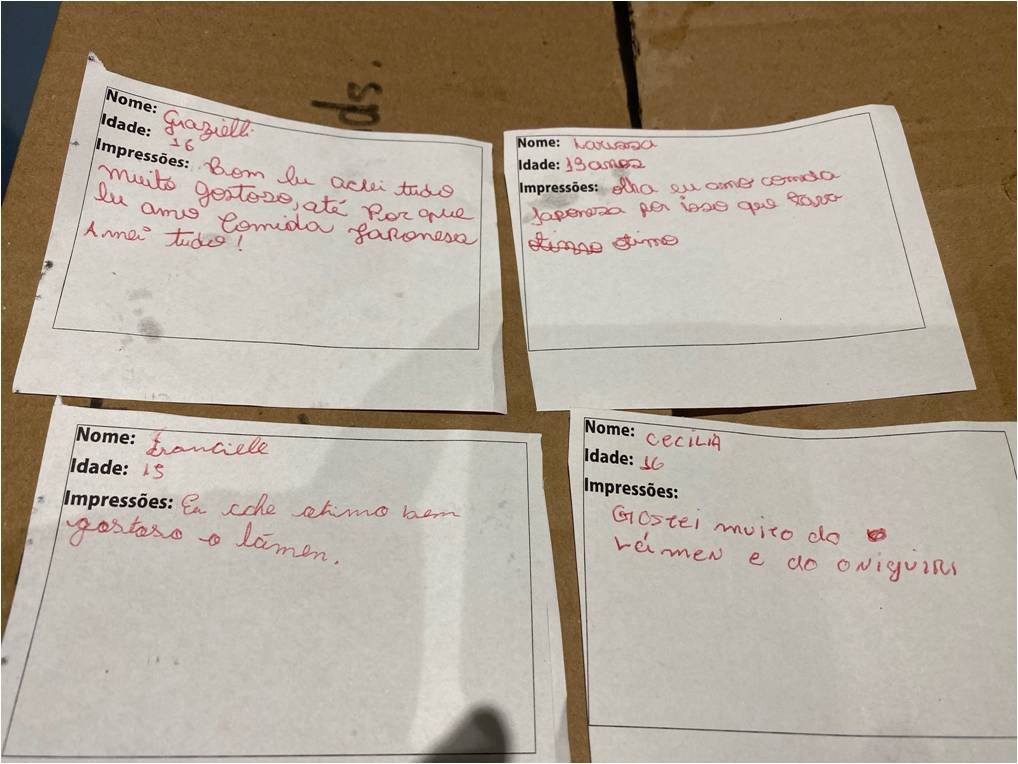 ds.
Nome: Grazielli
Idade: 16
Impressões: Bom Eu achei tudo
muito gostoso, até Porque
Eu amo Comida Japonesa
Amei tudo!
Nome: Larissa
Idade: 19 anos
Impressões: olha eu amo comida
Japonesa por isso que tava
otimo
Nome: Franciele
Idade: 15
Impressões: Eu cche otimo bem
gostoso o lámen.
Nome: CECILIA
Idade: 16
Impressões:
GOSTEI muito do
rámen e do oniguiri